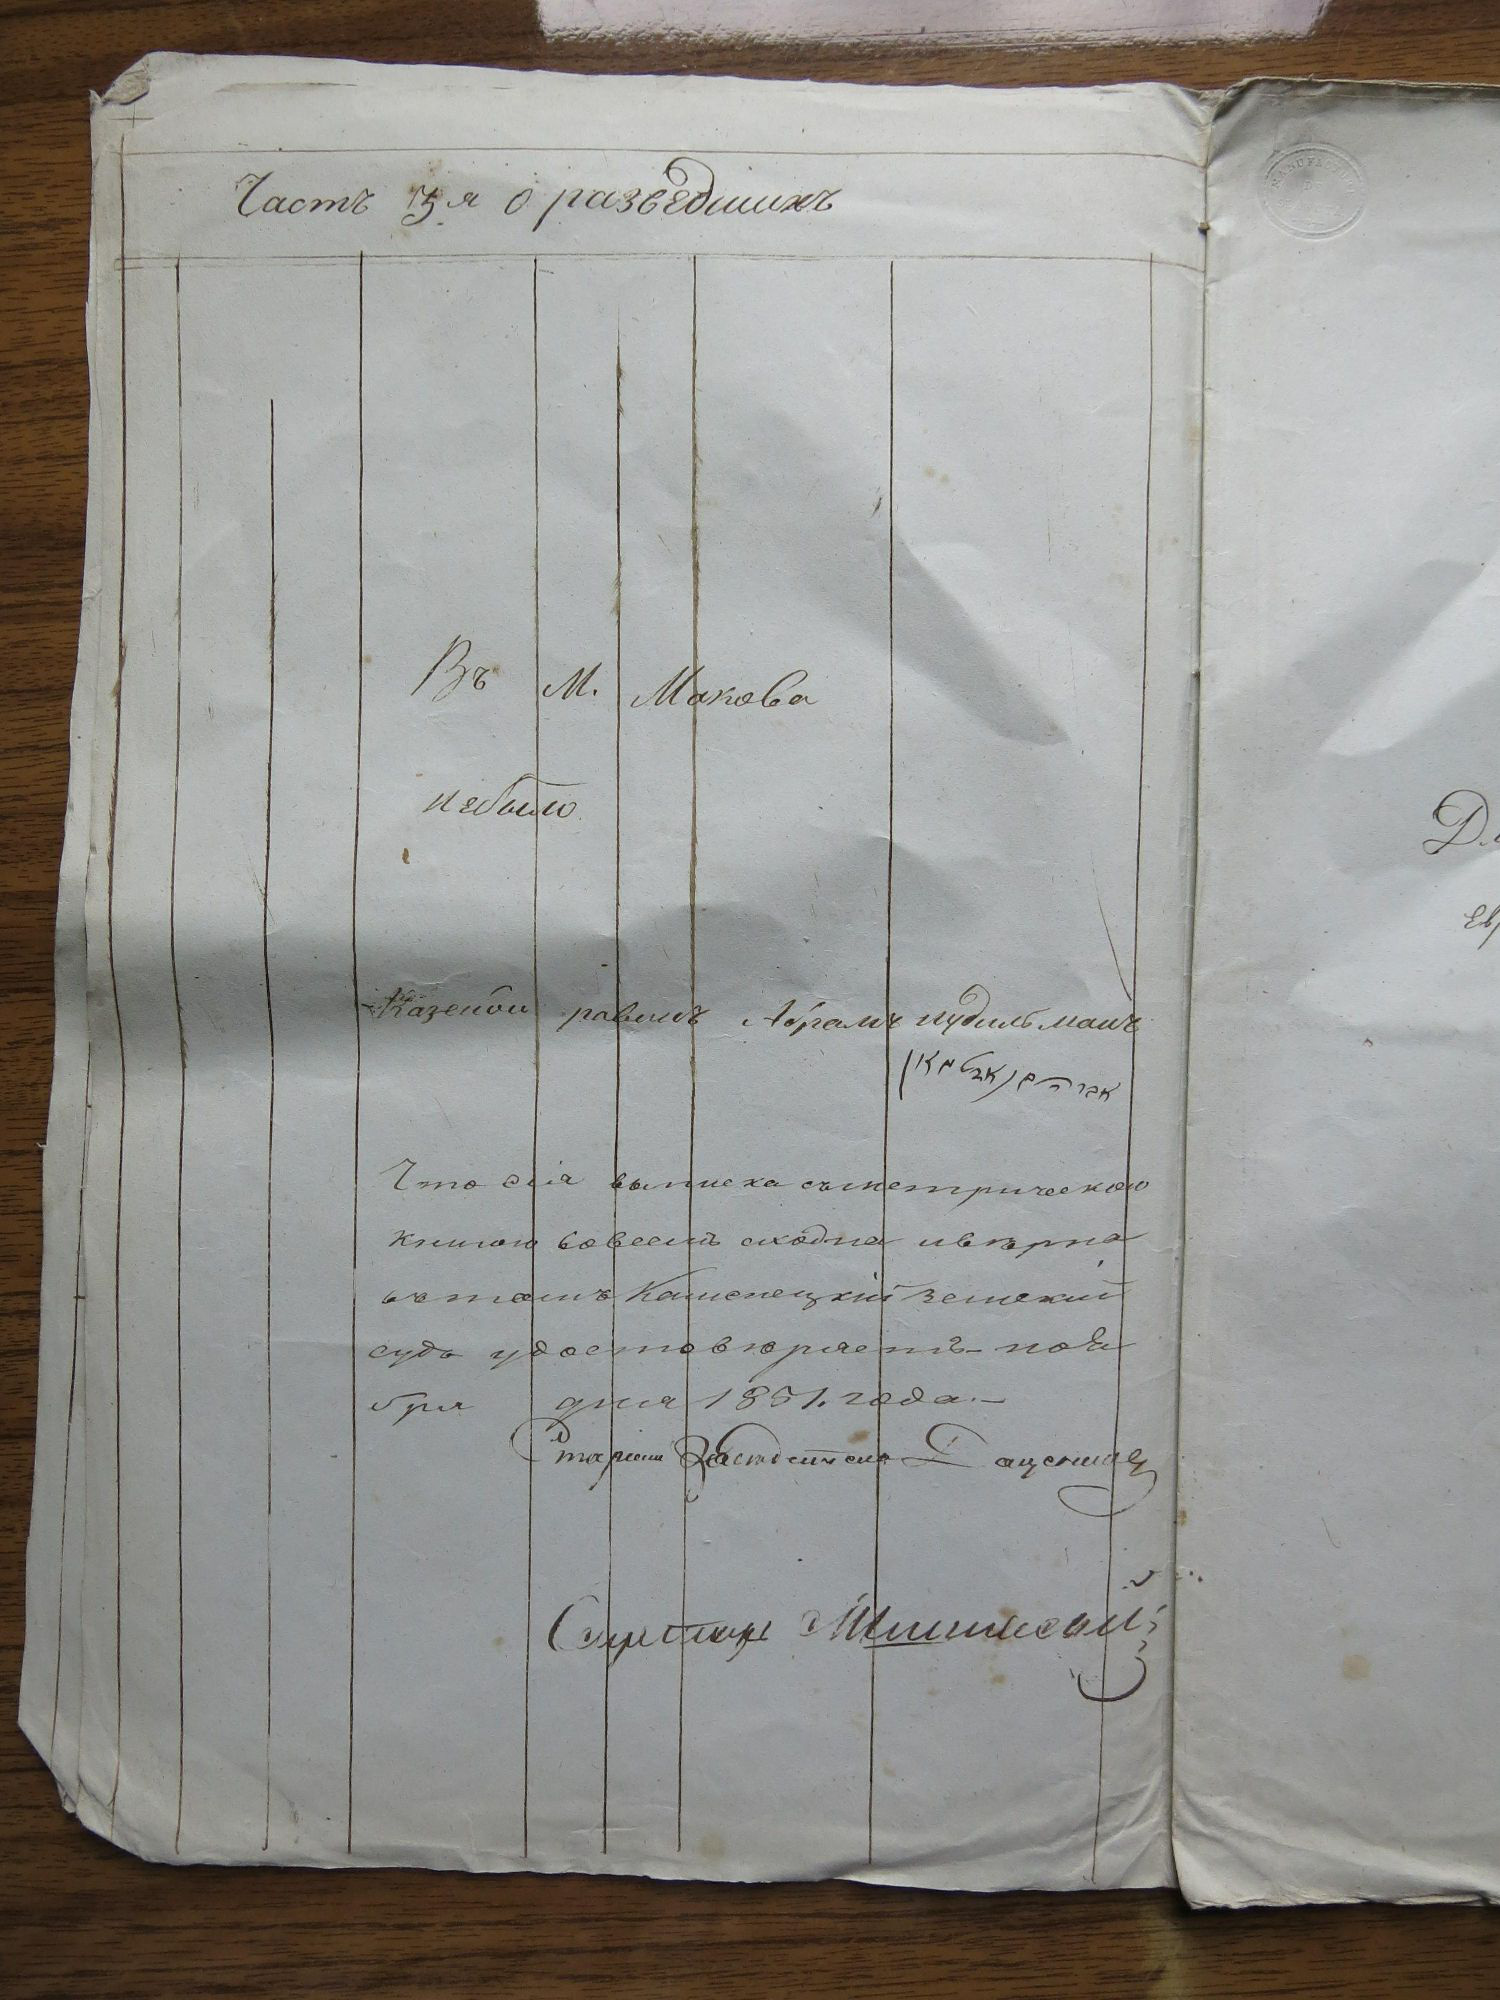 Часть 3я о разведшихъ
Въ М. Макова
небыло
Казеной равинъ Абрамъ Нудильманъ
Что сія выписка съметрическою
книгою вовсемъ сходна ивѣрна
вътомъ Каменецкій Земскій
судъ удостовѣряетъ ноя
бря дня 1851. года.—
Старшій Заседатель
Секретарь
Дл
евр